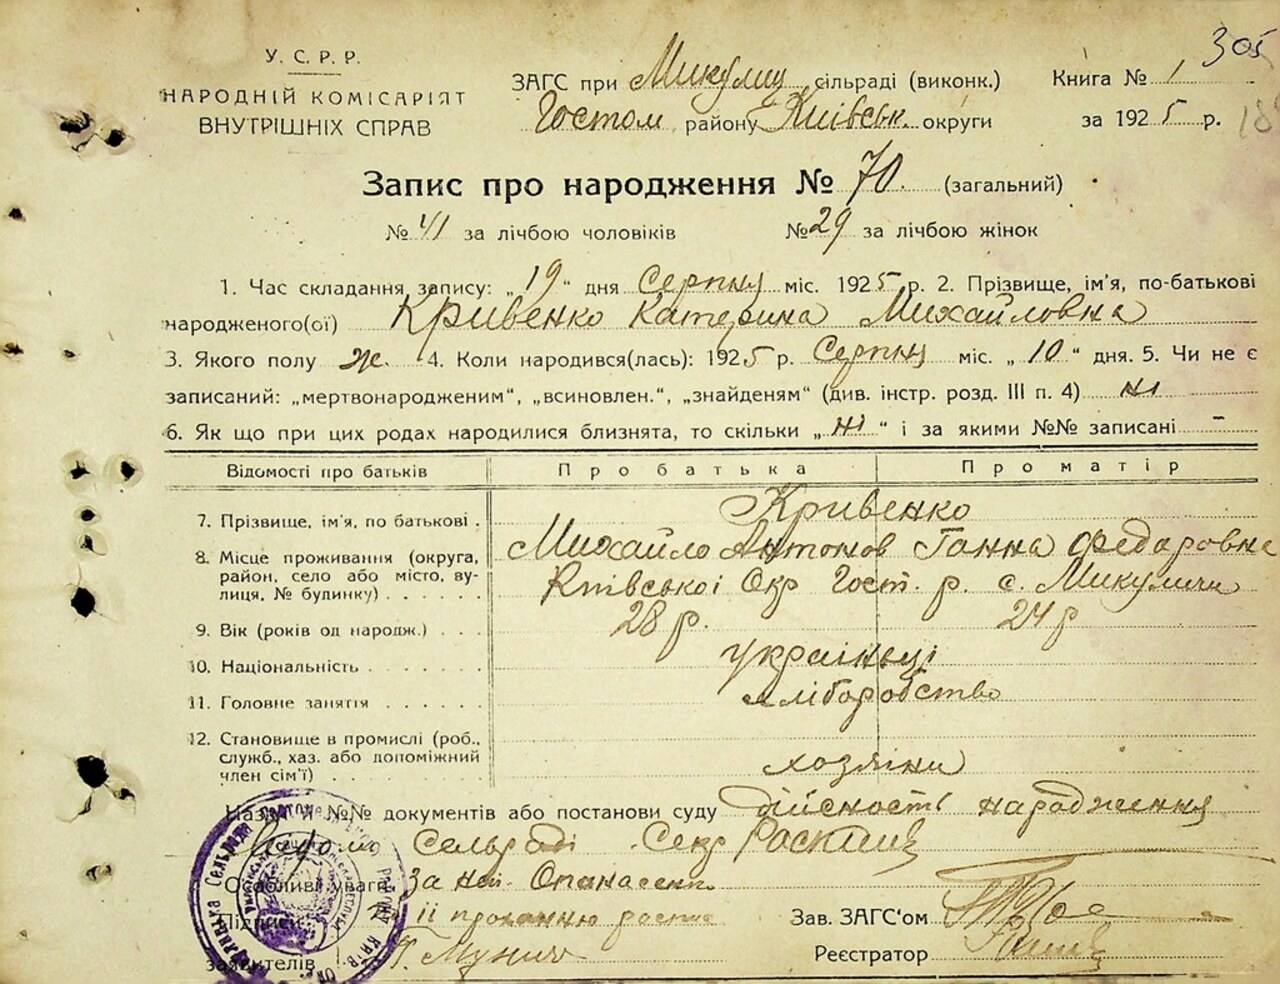 305
У. С. Р. Р.
НАРОДНІЙ КОМІСАРІЯТ
ВНУТРІШНІХ СПРАВ
ЗАГС при Микулиц сільраді (виконк.)
Гостом району Київськ. округи
Книга № 1
за 1925 р.
18
Запис про народження № 70. (загальний)
№ 41 за лічбою чоловіків №29 за лічбою жінок
1. Час складання запису: „19“ дня Серпня міс. 1925 р. 2. Прізвище, ім'я, по-батькові
народженого(ої) Кривенко Катерина Михайловна
3. Якого полу ж. 4. Коли народився(лась): 1925 р. Серпня міс. „10“ дня. 5. Чи не є
записаний: „мертвонародженим“, „всиновлен.“, „знайденям“ (див. інстр. розд. III п. 4) ні
6. Як що при цих родах народилися близнята, то скільки „ні“ і за якими №№ записані –
Відомості про батьків Про батька Про матір
7. Прізвище, ім'я, по батькові . Кривенко
Михайло Антонов Ганна Федоровна
8. Місце проживання (округа, район, село або місто, вулиця, № будинку) Київської Окр Гост. р. с. Микуличи
9. Вік (років од народж.) 28 р. 24 р
10. Національність українці
11. Головне заняття хліборобство
12. Становище в промислі (роб., служб., хаз. або допоміжний член сім'ї) хозяіни
Назва й №№ документів або постанови суду дійсность народження
Сельраді Секр
Особливі уваги За неї Опанасенк
Підписи її проханню
заявителів
Зав. ЗАГС'ом
Реєстратор